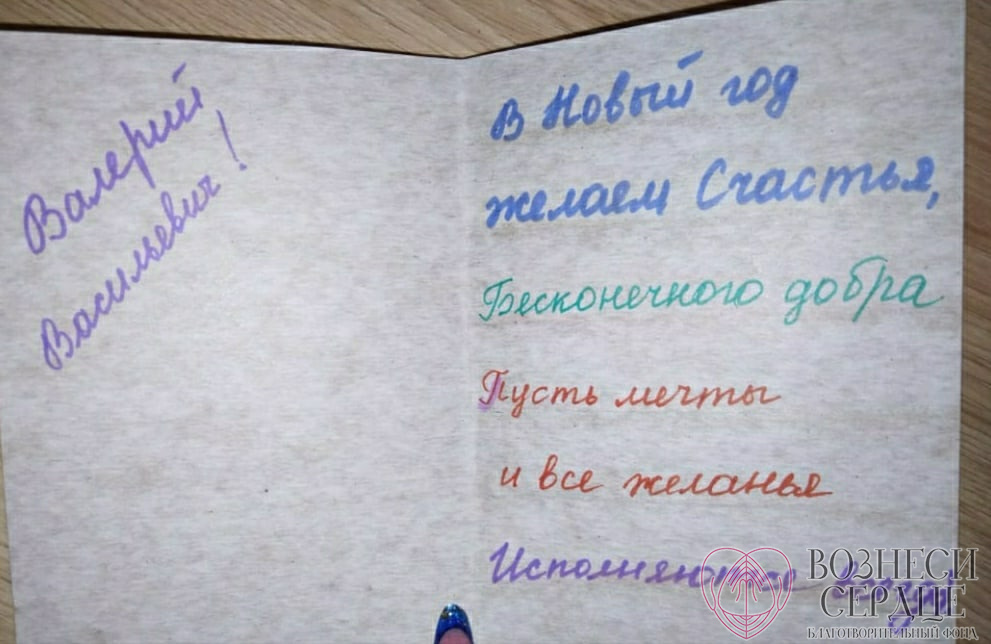 Валерий
Васильевич!
В Новый год
желаем Счастья,
Бесконечного добра
Пусть мечты
и все желанья
Исполняются всегда
ВОЗНЕСИ
СЕРДЦЕ
БЛАГОТВОРИТЕЛЬНЫЙ ФОНД